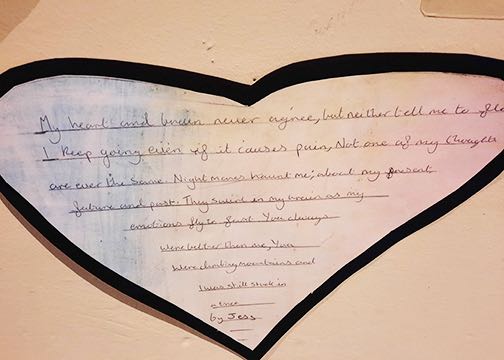 My heart and brain never agree, but neither tell me to
I keep going even if it causes pain, Not one of my thoughts
are ever the same. Nightmares haunt me; about my present,
future and past. They swirl in my brain as my
emotions fly fast. You always
were better then me, You
were climbing mountains and
I was still stuck in
a tree
by Jess